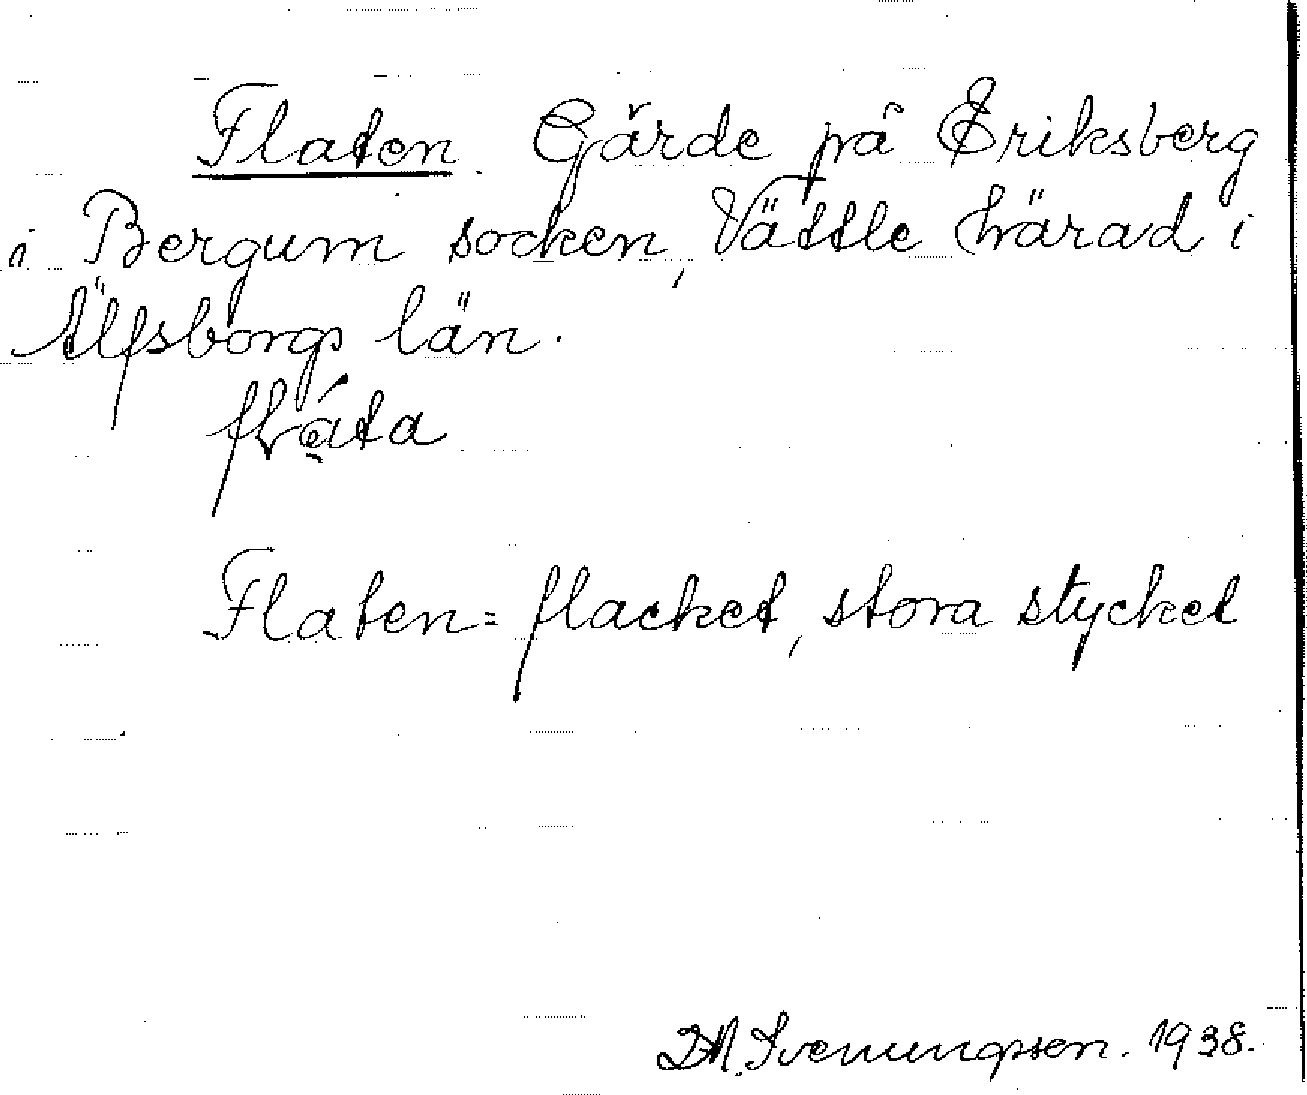 Flaten. Gärde på Eriksberg
i Bergum socken, Vättle härad i
Älfsborgs län.
fláta
Flaten = flacket, stora stycket
D.M. Svenungsson. 1938.